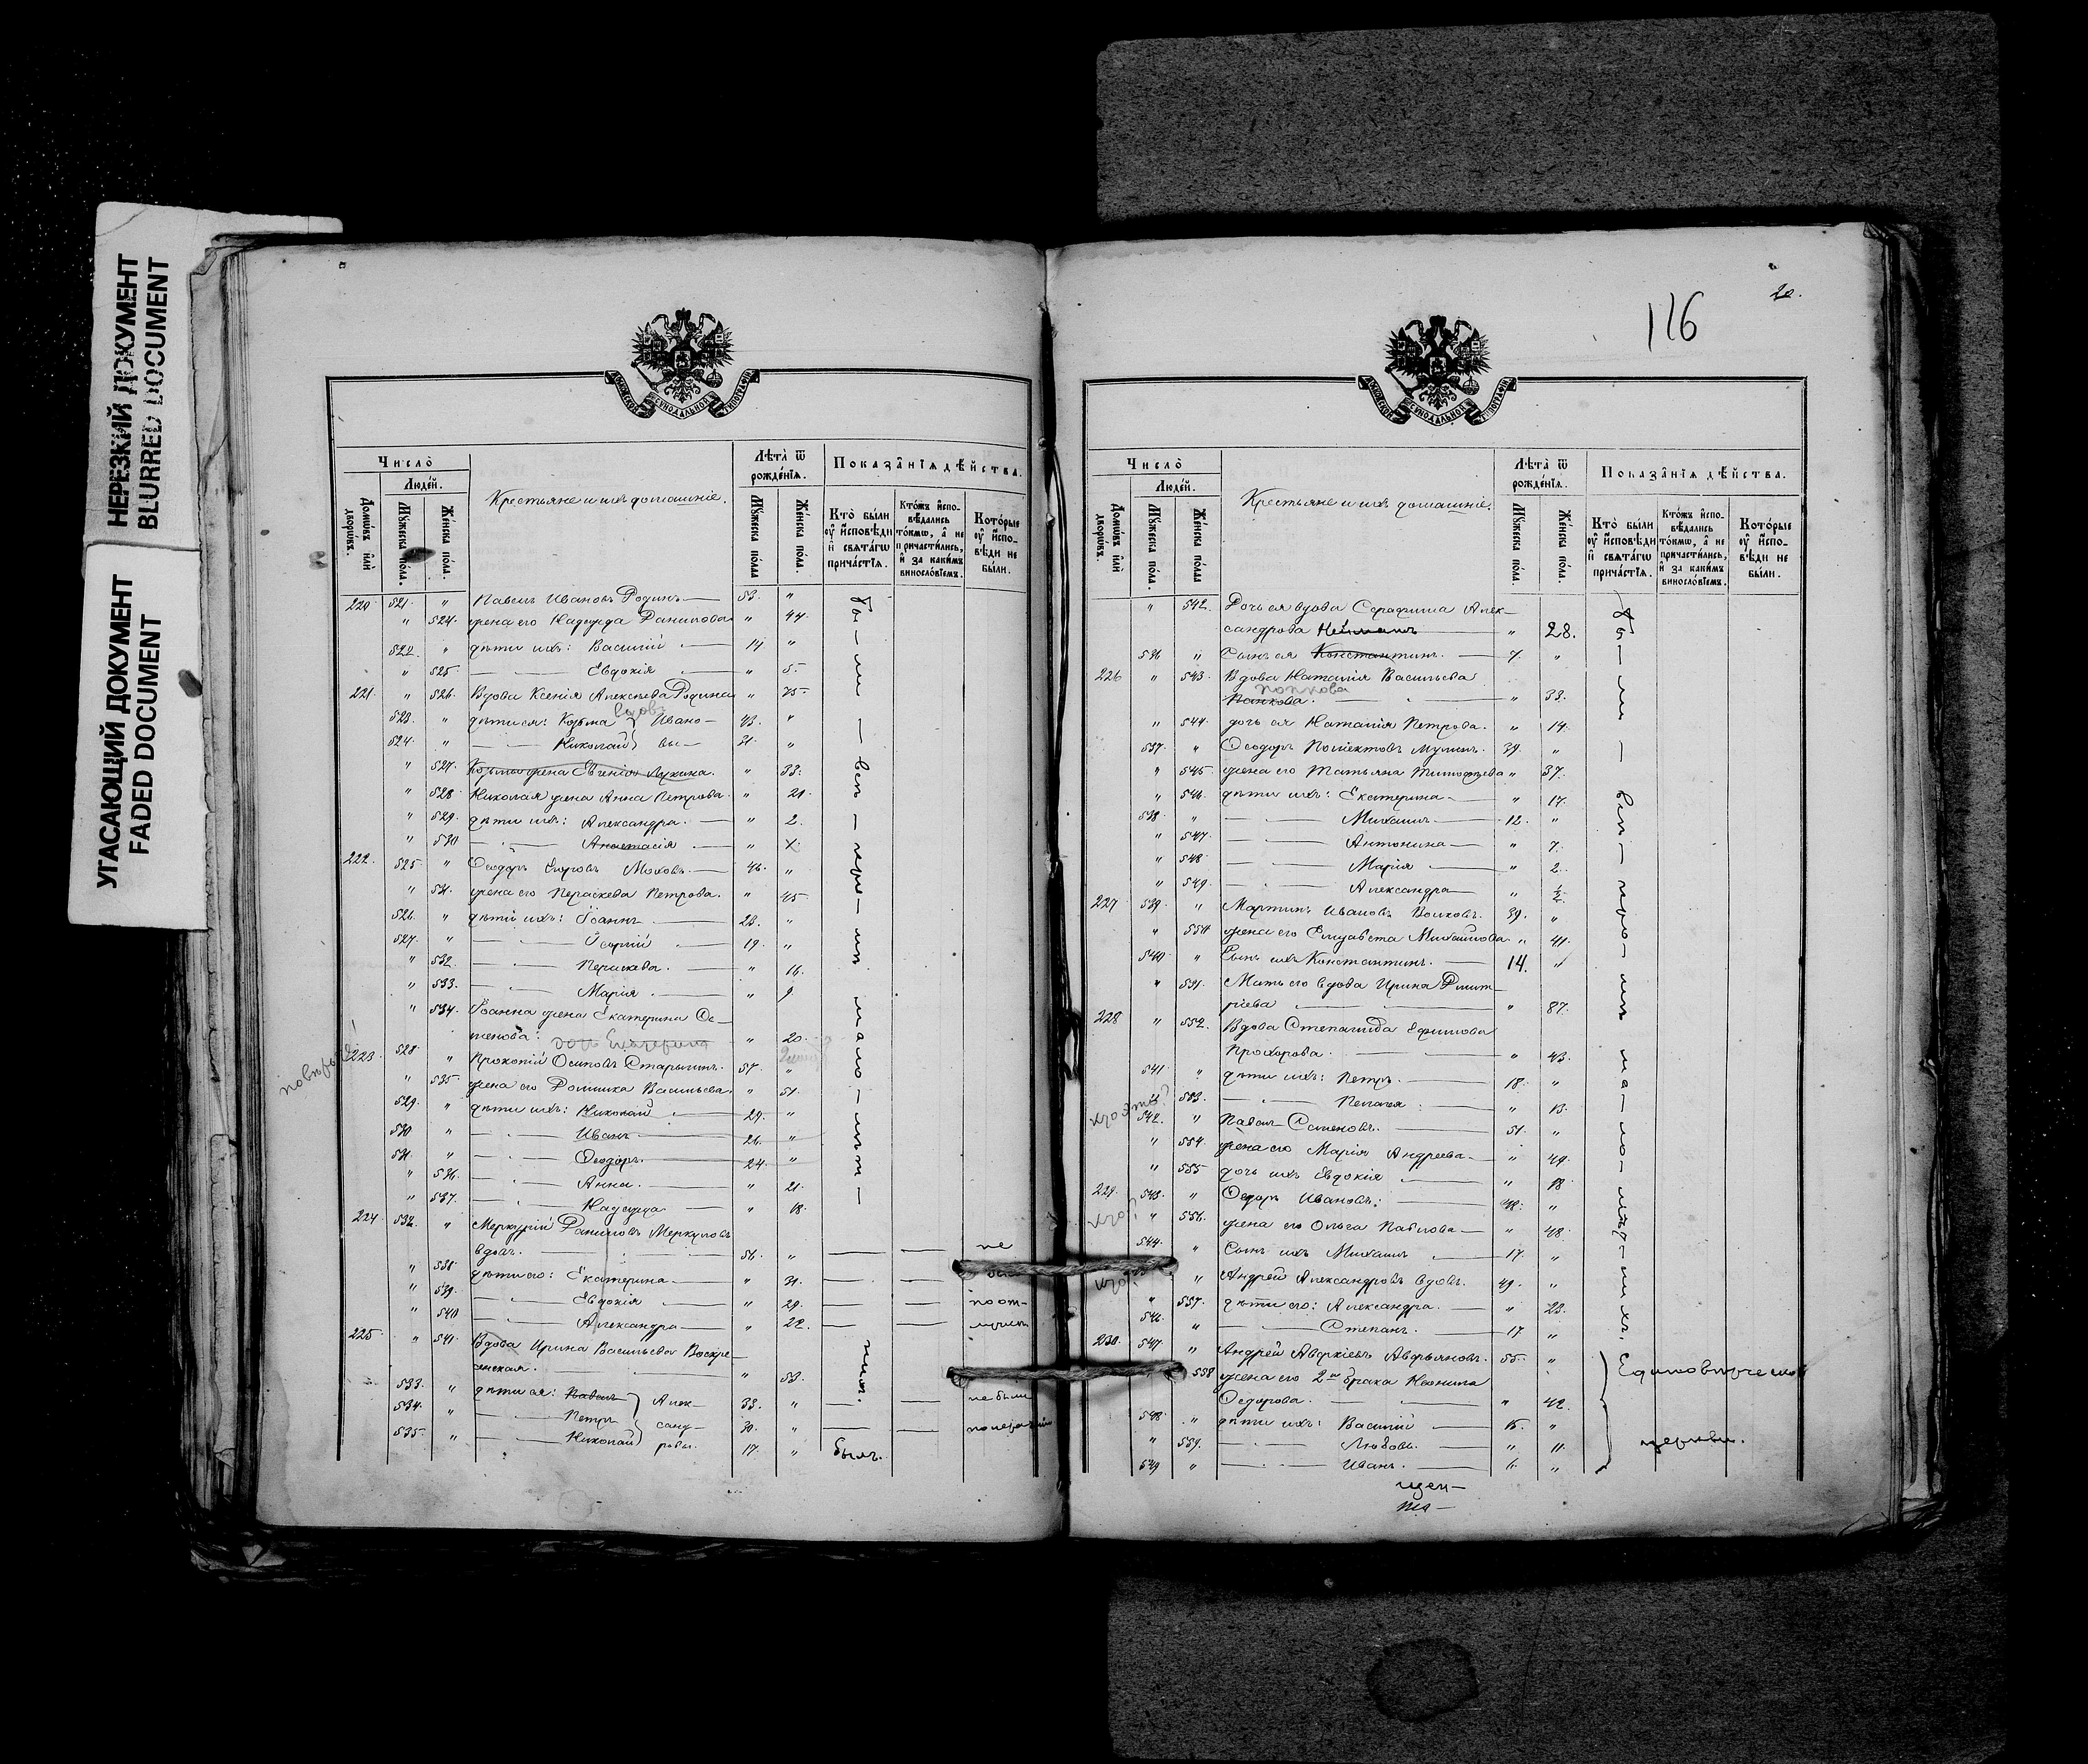 НЕРЕЗКИЙ ДОКУМЕНТ
BLURRED DOCUMENT
УГАСАЮЩИЙ ДОКУМЕНТ
FADED DOCUMENT
Число̀
Люде́й.
Домѡ́въ и҆лѝ дворѡ́въ.
Мꙋ́жеска по́ла.
Же́нска по́ла.
Крестьяне и ихъ домашніе.
Лѣ́та ѿ рожде́нїѧ.
Мꙋ́жеска по́ла
Же́нска по́ла.
Показа̑нїѧ дѣ́йства.
Кто̀ бы́ли
ᲂу҆ и҆сповѣ́ди
и҆ свѧта́гѡ
прича́стїѧ.
Кто́жъ и҆спо-
вѣ́дались
то́кмѡ, а҆ не
причасти́лись,
и҆ за каки́мъ
винословїемъ.
Кото́рые
ᲂу҆ и҆спо-
вѣ́ди не
бы́ли.
220 521. " Павелъ Ивановъ Родинъ — 53. "
" 524. жена его Надежда Данилова " 44.
522. " дѣти ихъ: Василій — 14 "
" 525. — Евдокія " 5.
221. " 526. Вдова Ксенія Алексѣева Родина " 75.
вдовъ
523. " дѣти ея: Козьма } Ивано- 43. "
524. " — Николай } вы — 31. "
" 527. Козьмы жена Евгенія Лукина. " 33.
" 528. Николая жена Анна Петрова. " 21.
" 529. дѣти ихъ: Александра. — " 2.
" 530 — Анастасія — "
222. 525. " Ѳеодоръ Егоровъ Моховъ. — 46. "
" 531. жена его Параскева Петрова. " 45.
526. " дѣти ихъ: Іоаннъ — 23. "
527. " — Георгій — 19. "
" 532. — Параскева. — " 16.
" 533. — Марія. — " 9.
" 534. Іоанна жена Екатерина Се-
менова. дочь Екатерина " 20.
223. 528. " Прокопій Осиповъ Старынинъ. 57. "
" 535. жена его Домника Васильева. " 51.
529. " дѣти ихъ: Николай — 29. "
530 " — Иванъ — 26. "
531. " — Ѳеодоръ. — 24. "
" 536. — Анна. — " 21.
" 537. — Надежда — " 18.
224. 532. " Меркурій Даниловъ Меркуловъ
вдовъ. — 56. " — — не
" 538. дѣти его: Екатерина — " 31. — —
" 539. — Евдокія — " 29. — — по от-
" 540 — Александра — " 22. — — лучкѣ
225. " 541. Вдова Ирина Васильева Воскре-
сенская. — " 53.
533. " дѣти ея: Павелъ } Алек- 33. " — — не были
534. " — Петръ } санд- 30. " — —
535. " — Николай } ровы. 17. " былъ.
бы — ли — всѣ — кро — мѣ мало — лѣт — нихъ.
20.
116
Число̀
Люде́й.
Домѡ́въ и҆лѝ дворѡ́въ.
Мꙋ́жеска по́ла.
Же́нска по́ла
Крестьяне и ихъ домашніе.
Лѣ́та ѿ рожде́нїѧ.
Мꙋ́жеска по́ла.
Же́нска по́ла.
Показа̑нїѧ дѣ́йства.
Кто̀ бы́ли
ᲂу҆ и҆сповѣ́ди
и҆ свѧта́гѡ
прича́стїѧ.
Кто́жъ и҆спо-
вѣ́дались
то́кмѡ, а҆ не
причасти́лись,
и҆ за каки́мъ
винословїемъ.
Кото́рые
ᲂу҆ и҆спо-
вѣ́ди не
бы́ли.
" 542. Дочь ея вдова Серафима Алек-
сандрова Нейманъ — " 28.
536 " Сынъ ея Константинъ. — 7. "
226 " 543. Вдова Наталія Васильева
Попкова
Панкова. — " 33.
" 544. дочь ея Наталія Петрова. " 14.
537. " Ѳеодоръ Поліектовъ Мулинъ. 39. "
" 545. жена его Татьяна Тимофеева " 37.
" 546. дѣти ихъ: Екатерина — " 17.
538. " — Михаилъ — 12. "
" 547. — Антонина — " 7.
" 548. — Марія — " 2.
" 549. — Александра — " ½.
227 539. " Мартинъ Ивановъ Волковъ. 39. "
" 550 жена его Елизавета Михайлова. " 41.
540 " Сынъ ихъ Константинъ. — 14. "
" 551. Мать его вдова Ирина Дмит-
ріева — " 87.
228 " 552. Вдова Степанида Ефимова
Прохорова. — " 43.
541. " дѣти ихъ: Петръ. — 18. "
" 553. — Пелагея — " 13.
кто это?
542. " Павелъ Семеновъ. — 51. "
" 554. жена его Марія Андреева — " 49.
" 555 дочь ихъ Евдокія — " 18.
229. 543. " Ѳедоръ Ивановъ: — 48. "
кто?
" 556. жена его Ольга Павлова — " 48.
544. " Сынъ ихъ Михаилъ — 17. "
кто?
" Андрей Александровъ вдовъ. 49. "
" 557. дѣти его: Александра. — " 23.
546. " — Степанъ. — 17. "
230. 547 " Андрей Аверкіевъ Аверьяновъ. 55. "
558 жена его 2го брака Неонила
Ѳедорова. — " 42.
548. " дѣти ихъ: Василій — 15. "
" 559. — Любовь. — " 11.
549 " — Иванъ. — 6. "
бы — ли — всѣ — кро — мѣ ма — ло — лѣт — нихъ.
Единовѣрческой
церкви.